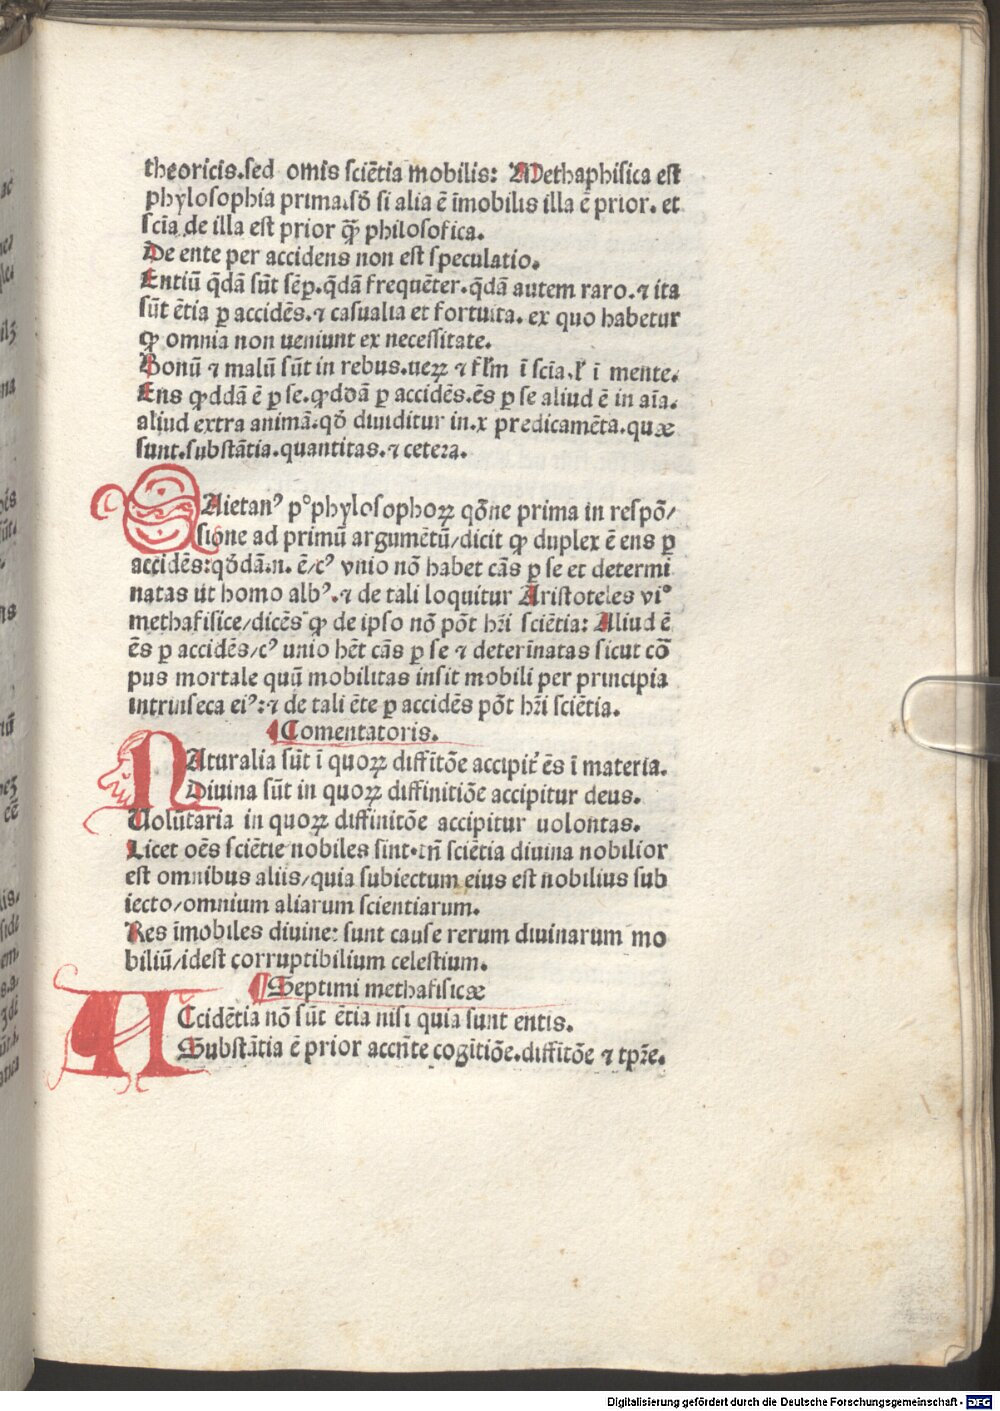 theoricis.sed omis sciētia mobilis: Methaphisica est
phylosophia prima.sꝫ si alia ē īmobilis illa ē prior. et
scīa de illa est prior ꝙ̄ philosofica.
De ente per accidens non est speculatio.
Entiū q̄dā sūt sēp.q̄dā frequēter.q̄dā autem raro.⁊ ita
sūt ētia ꝑ accidēs.⁊ casualia et fortuita. ex quo habetur
ꝙ omnia non ueniunt ex necessitate.
Bonū ⁊ malū sūt in rebus.ueꝝ ⁊ fl̄m ī scīa.ł ī mente.
Ens ꝙddā ē ꝑ se.ꝙddā ꝑ accidēs.ēs ꝑ se aliud ē in aīa.
aliud extra animā.qd̓ diuiditur in.x predicamēta.quæ
sunt.substātia.quantitas.⁊ cetera.
GAietanꝰ pᵒ phylosophoꝝ qōne prima in respō/
sione ad primū argumētū/dicit ꝙ duplex ē ens ꝑ
accidēs:qd̓dā.n. ē/cꝰ vnio nō habet cās ꝑ se et determi
natas ut homo albꝰ.⁊ de tali loquitur Aristoteles viᵒ
methafisice/dicēs ꝙ de ipso nō pōt hr̄i sciētia: Aliud ē
ēs ꝑ accidēs/cꝰ unio hēt cās ꝑ se ⁊ deterīnatas sicut cō
pus mortale quū mobilitas insit mobili per principia
intrinseca eiꝰ:⁊ de tali ēte ꝑ accidēs pōt hr̄i sciētia.
¶Comentatoris.
NAturalia sūt ī quoꝝ diffītōe accipit᷑ ēs ī materia.
Diuina sūt in quoꝝ diffinitiōe accipitur deus.
Uolūtaria in quoꝝ diffinitōe accipitur uolontas.
Licet oēs sciētie nobiles sint.tn̄ sciētia diuina nobilior
est omnibus aliis/quia subiectum eius est nobilius sub
iecto/omnium aliarum scientiarum.
Res īmobiles diuine: sunt cause rerum diuinarum mo
biliū/idest corruptibilium celestium.
¶Septimi methafisicæ
ACcidētia nō sūt ētia nisi quia sunt entis.
Substātia ē prior accn̄te cogitiōe.diffitōe ⁊ tpr̄e.
Digitalisierung gefördert durch die Deutsche Forschungsgemeinschaft - DFG